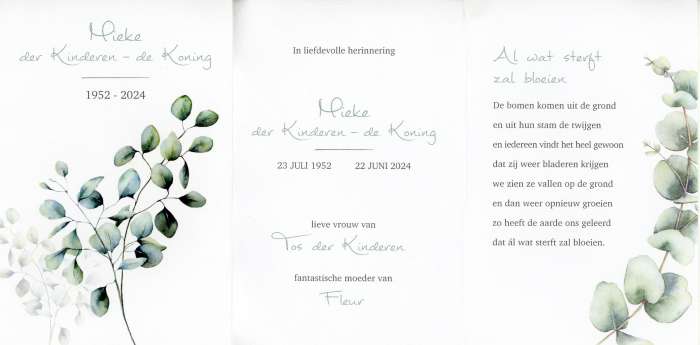 Mieke
der Kinderen - de Koning
1952 - 2024
In liefdevolle herinnering
Mieke
der Kinderen - de Koning
23 JULI 1952 22 JUNI 2024
lieve vrouw van
Tos der Kinderen
fantastische moeder van
Fleur
Al wat sterft
zal bloeien
De bomen komen uit de grond
en uit hun stam de twijgen
en iedereen vindt het heel gewoon
dat zij weer bladeren krijgen
we zien ze vallen op de grond
en dan weer opnieuw groeien
zo heeft de aarde ons geleerd
dat ál wat sterft zal bloeien.